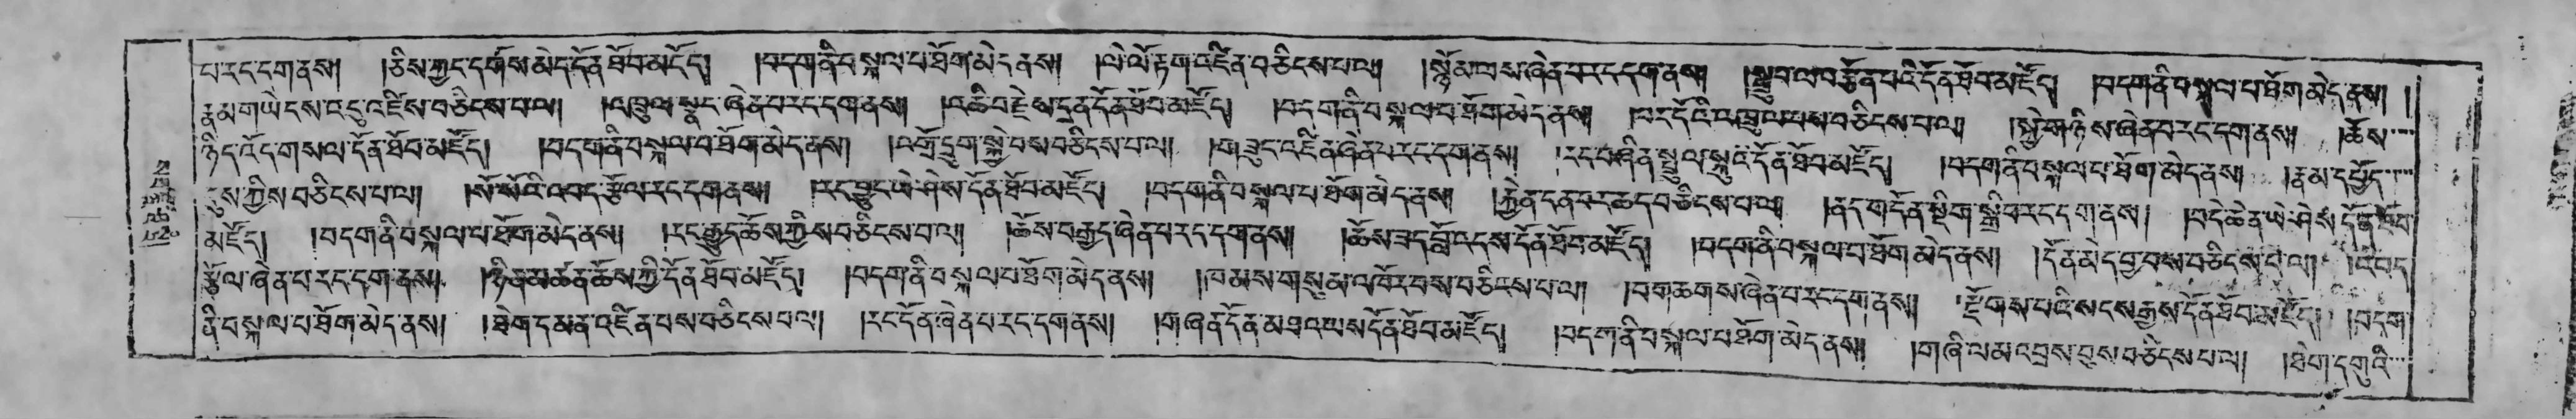 པ་རང་དགནས། །ཅིས་ཀྱང་དགོས་མེད་དོན་ཐོབ་མཛོད། །བདག་ནི་བསྐལ་པ་ཐོག་མེད་ནས། །ལེ་ལོ་རྟག་འཛིན་བཅིངས་པ་ལ། །སྙོམ་ལས་ཞེན་པ་རང་དག་ནས། །སྒྲུབ་ལ་བརྩོན་པའི་དོན་ཐོབ་མཛོད། །བདག་ནི་བསྐལ་པ་ཐོག་མེད་ནས། །
རྣམ་གཡེངས་འདུ་འཛིས་བཅིངས་པ་ལ། །འཁྲུལ་སྣང་ཞེན་པ་རང་དག་ནས། །འཆི་བ་རྗེས་དྲན་དོན་ཐོབ་མཛོད། །བདག་ནི་བསྐལ་པ་ཐོག་མེད་ནས། །བར་དོའི་འཁྲུལ་པས་བཅིངས་པ་ལ། །སྐྱེ་གཉིས་ཞེན་པ་རང་དག་ནས། །ཆོས་
ཉིད་འོད་གསལ་དོན་ཐོབ་མཛོད། །བདག་ནི་བསྐལ་པ་ཐོག་མེད་ནས། །འགྲོ་དྲུག་སྐྱེ་བས་བཅིངས་པ་ལ། །གཟུང་འཛིན་ཞེན་པ་རང་དག་ནས། །རང་བཞིན་སྤྲུལ་སྐུའི་དོན་ཐོབ་མཛོད། །བདག་ནི་བསྐལ་པ་ཐོག་མེད་ནས། །རྣམ་དཔྱོད་
དུས་ཀྱིས་བཅིངས་པ་ལ། །སོ་སོའི་འབད་རྩོལ་རང་དག་ནས། །རང་བྱུང་ཡེ་ཤེས་དོན་ཐོབ་མཛོད། །བདག་ནི་བསྐལ་པ་ཐོག་མེད་ནས། །རྐྱེན་ངན་བར་ཆད་བཅིངས་པ་ལ། །ནད་གདོན་སྡིག་སྒྲིབ་རང་དག་ནས། །བདེ་ཆེན་ཡེ་ཤེས་དོན་ཐོབ་
མཛོད། །བདག་ནི་བསྐལ་པ་ཐོག་མེད་ནས། །རང་རྒྱུད་ཆོས་ཀྱིས་བཅིངས་པ་ལ། །ཆོས་བརྒྱད་ཞེན་པ་རང་དག་ནས། །ཆོས་ཟད་བློ་འདས་དོན་ཐོབ་མཛོད། །བདག་ནི་བསྐལ་པ་ཐོག་མེད་ནས། །དོན་མེད་བྱ་བས་བཅིངས་པ་ལ། །འབད་
རྩོལ་ཞེན་པ་རང་དག་ནས། །ཉིན་མཚན་ཆོས་ཀྱི་དོན་ཐོབ་མཛོད། །བདག་ནི་བསྐལ་པ་ཐོག་མེད་ནས། །ཁམས་གསུམ་འཁོར་བས་བཅིངས་པ་ལ། །བག་ཆགས་ཞེན་པ་རང་དག་ནས། །རྫོགས་པའི་སངས་རྒྱས་དོན་ཐོབ་མཛོད། །བདག་
ནི་བསྐལ་པ་ཐོག་མེད་ནས། །ཐེག་དམན་འཛིན་པས་བཅིངས་པ་ལ། །རང་དོན་ཞེན་པ་རང་དག་ནས། །གཞན་དོན་མཐའ་ཡས་དོན་ཐོབ་མཛོད། །བདག་ནི་བསྐལ་པ་ཐོག་མེད་ནས། །གཞི་ལམ་འབྲས་བུས་བཅིངས་པ་ལ། །ཐེག་དགུའི་